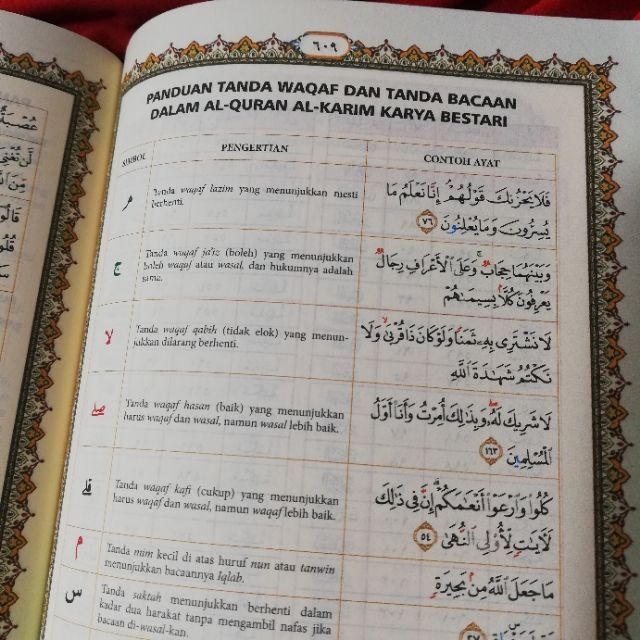 ٦٠٩
PANDUAN TANDA WAQAF DAN TANDA BACAAN
DALAM AL-QURAN AL-KARIM KARYA BESTARI
SIMBOL PENGERTIAN CONTOH AYAT
Tanda waqaf lazim yang menunjukkan mesti
berhenti.
فَلَا يَحْزُنكَ قَوْلُهُمْ ۘ إِنَّا نَعْلَمُ مَا
يُسِرُّونَ وَمَا يُعْلِنُونَ ٧٦
ج
Tanda waqaf ja'iz (boleh) yang menunjukkan
boleh waqaf atau wasal, dan hukumnya adalah
sama.
وَبَيْنَهُمَا حِجَابٌ ۚ وَعَلَى الْأَعْرَافِ رِجَالٌ
يَعْرِفُونَ كُلًّا بِسِيمَاهُمْ
لا
Tanda waqaf qabih (tidak elok) yang menun-
jukkan dilarang berhenti.
لَا نَشْتَرِي بِهِ ثَمَنًا وَلَوْ كَانَ ذَا قُرْبَىٰ ۙ وَلَا
نَكْتُمُ شَهَادَةَ اللَّهِ
صلے
Tanda waqaf hasan (baik) yang menunjukkan
harus waqaf dan wasal, namun wasal lebih baik.
لَا شَرِيكَ لَهُ ۖ وَبِذَٰلِكَ أُمِرْتُ وَأَنَا أَوَّلُ
الْمُسْلِمِينَ ١٦٣
قلے
Tanda waqaf kafi (cukup) yang menunjukkan
harus waqaf dan wasal, namun waqaf lebih baik.
كُلُوا وَارْعَوْا أَنْعَامَكُمْ ۗ إِنَّ فِي ذَٰلِكَ
لَآيَاتٍ لِّأُولِي النُّهَىٰ ٥٤
م
Tanda mim kecil di atas huruf nun atau tanwin
menunjukkan bacaannya Iqlab.
مَا جَعَلَ اللَّهُ مِنۢ بَحِيرَةٍ
س
Tanda saktah menunjukkan berhenti dalam
kadar dua harakat tanpa mengambil nafas jika
bacaan di-wasal-kan.